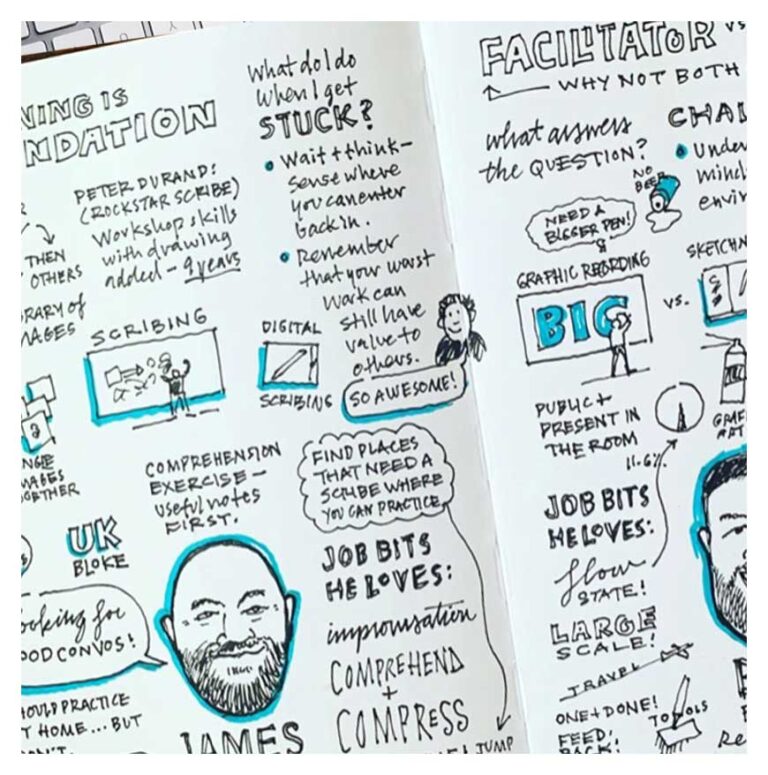 NING IS
NDATION
PETER DURAND:
(ROCKSTAR SCRIBE)
Workshop skills
with drawing
added - 9 years
THEN
OTHERS
RARY of
MAGES
SCRIBING
DIGITAL
SCRIBING
What do I do
when I get
STUCK?
• Wait + think -
sense where
you can enter
back in.
• Remember
that your worst
work can
still have
value to
others.
SO AWESOME!
a
NGLE
MAGES
GETHER
COMPREHENSION
EXERCISE -
useful notes
FIRST.
UK
BLOKE
ooking for
OOD CONVOS!
HOULD PRACTICE
T HOME... BUT
JAMES
FIND PLACES
THAT NEED A
SCRIBE WHERE
YOU CAN PRACTICE
JOB BITS
HE LOVES:
improvisation
COMPREHEND
+
COMPRESS
JUMP
FACILITATOR vs
WHY NOT BOTH
what answers
the QUESTION?
CHAL
• Under
mind
envir
NO
BEER
NEED A
BIGGER PEN!
&
GRAPHIC RECORDING
BIG
vs.
SKETCHN
PUBLIC +
PRESENT IN
THE ROOM
11.6%
GRAF
JOB BITS
HE LOVES:
flow
STATE!
LARGE
SCALE!
TRAVEL
ONE + DONE!
FEED
BACK!
TOOLS
Re